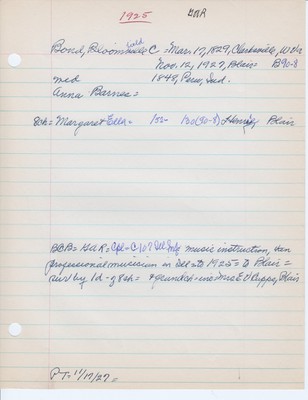 1925 GAR
Bond, Bloomfield C = Mar. 17, 1829, Clarksville,
Nov. 12, 1927, Blair = B90-8
md 1849, Peru, Ind.
Anna Barnes =
8ch = Margaret Ella = Henry Blair
BCB = GAR = Cpl = C 107 Ill Inf music instruction, then
professional musician in Ill = to 1925 = to Blair =
surv by 1d - 98ch = = Mrs E V Cupps, Blair
PT = 11/17/27 =